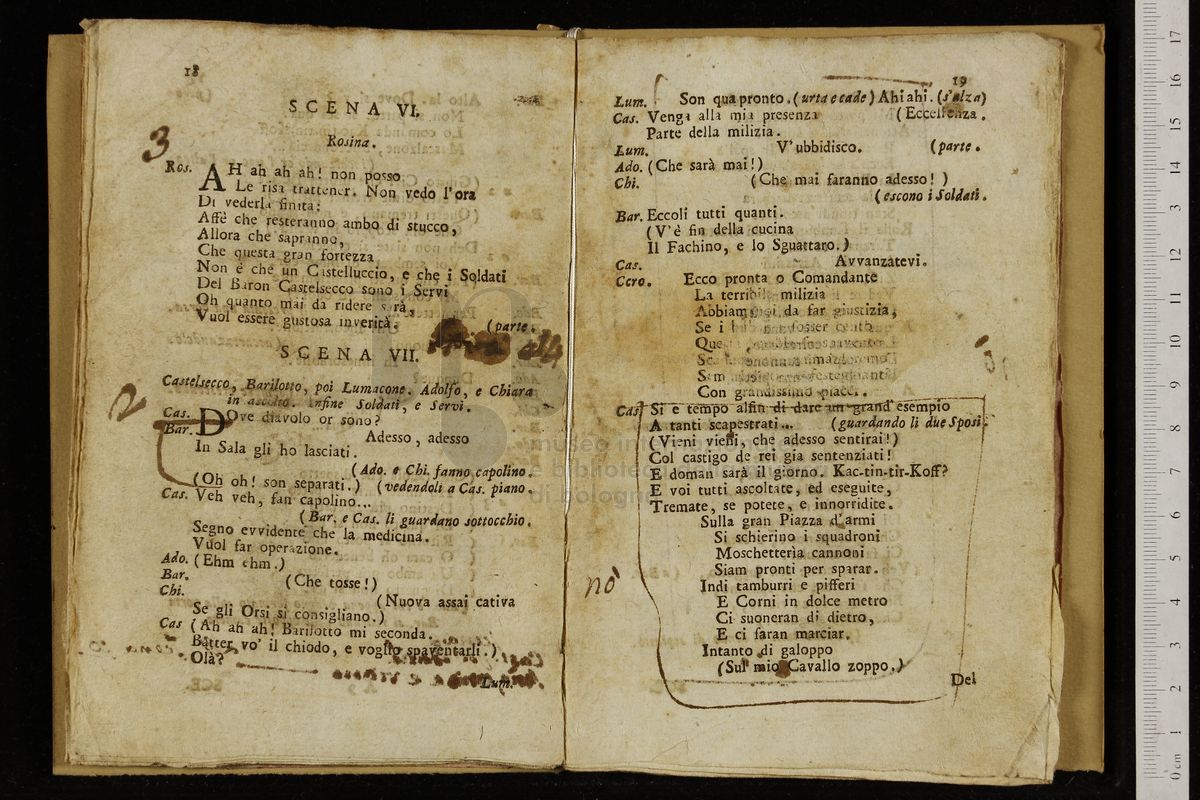 18
SCENA VI.
Rosina.
3
Ros. AH ah ah ah! non posso
Le risa trattener. Non vedo l'ora
Di vederla finita:
Affè che resteranno ambo di stucco,
Allora che sapranno,
Che questa gran fortezza
Non è che un Castelluccio, e che i Soldati
Del Baron Castelsecco sono i Servi
Oh quanto mai da ridere sarà,
Vuol essere gustosa inverità. (parte.
SCENA VII.
2
Castelsecco, Barilotto, poi Lumacone. Adolfo, e Chiara
in ascolto. infine Soldati, e Servi.
Cas. DOve diavolo or sono?
Bar. Adesso, adesso
In Sala gli ho lasciati.
(Ado. e Chi. fanno capolino.
(Oh oh! son separati.) (vedendoli a Cas. piano.
Cas. Veh veh, fan capolino...
(Bar. e Cas. li guardano sottocchio.
Segno evvidente che la medicina.
Vuol far operazione.
Ado. (Ehm ehm.)
Bar. (Che tosse!)
Chi. (Nuova assai cativa
Se gli Orsi si consigliano.)
Cas (Ah ah ah! Barilotto mi seconda.
Batter vo' il chiodo, e voglio spaventarli.)
Olà?
Lum.
19
Lum. Son qua pronto. (urta e cade) Ahi ahi. (s'alza)
Cas. Venga alla mia presenza (Eccellenza.
Parte della milizia.
Lum. V'ubbidisco. (parte.
Ado. (Che sarà mai!)
Chi. (Che mai faranno adesso!)
(escono i Soldati.
Bar. Eccoli tutti quanti.
(V'è fin della cucina
Il Fachino, e lo Sguattaro.)
Cas. Avvanzatevi.
Coro. Ecco pronta o Comandante
La terribile milizia
Abbiam da far giustizia,
Se i fosser cento
Con grandissimo piacer.
Cas Si è tempo alfin di dare un grand'esempio
A tanti scapestrati... (guardando li due Sposi.
(Vieni vieni, che adesso sentirai!)
Col castigo de rei gia sentenziati!
E doman sarà il giorno. Kac-tin-tir-Koff?
E voi tutti ascoltate, ed eseguite,
Tremate, se potete, e innorridite.
Sulla gran Piazza d'armi
Si schierino i squadroni
Moschetterìa cannoni
Siam pronti per sparar.
nò
Indi tamburri e pifferi
E Corni in dolce metro
Ci suoneran di dietro,
E ci faran marciar.
Intanto di galoppo
(Sul mio Cavallo zoppo.)
Del